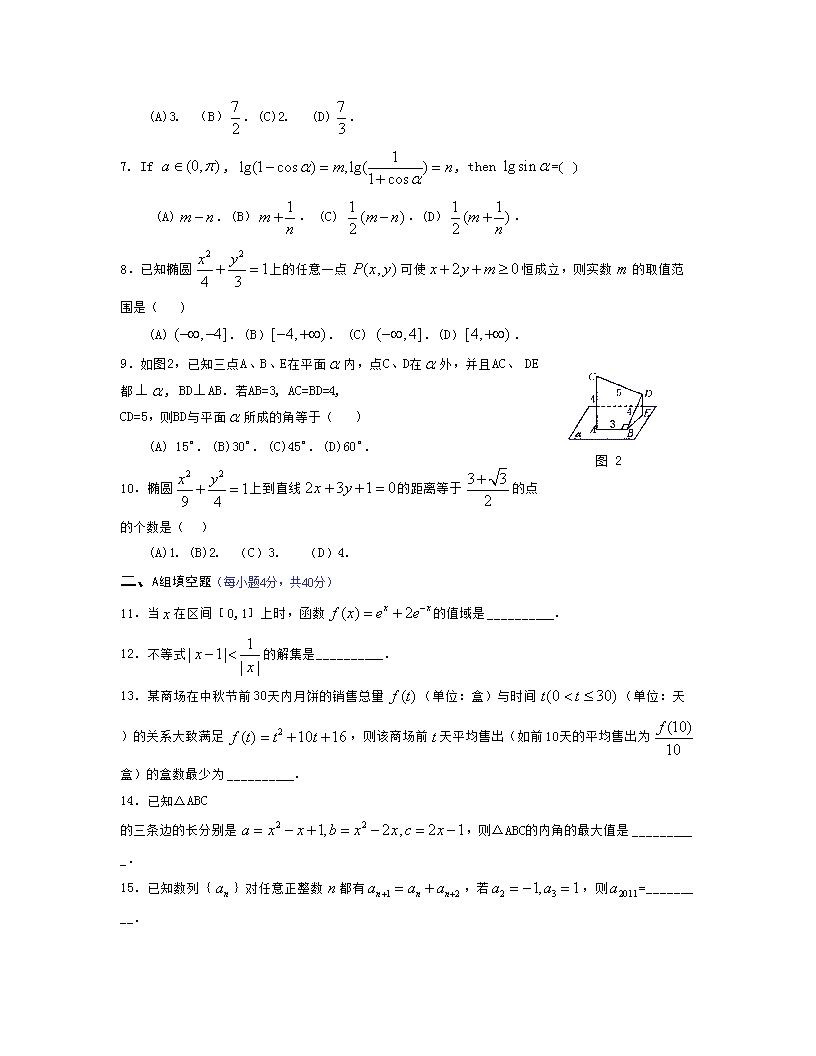 (A)3. (B) 7/2. (C)2. (D) 7/3.
7. If a∈(0,π), lg(1−cosα)=m,lg(1/(1+cosα))=n, then lgsinα=( )
(A) m−n. (B) m+1/n. (C) 1/2(m−n). (D) 1/2(m+1/n).
8.已知椭圆 x²/4+y²/3=1上的任意一点 P(x,y) 可使 x+2y+m≥0恒成立，则实数 m 的取值范
围是( )
(A) (−∞,−4]. (B) [−4,+∞). (C) (−∞,4]. (D) [4,+∞).
9.如图2，已知三点A、B、E在平面α内，点C、D在α外，并且AC、 DE
都⊥α, BD⊥AB. 若AB=3, AC=BD=4,
CD=5，则BD与平面α所成的角等于( )
(A) 15°. (B)30°. (C)45°. (D)60°.
C
5
D
4
4
E
3
A
B
α
图 2
10.椭圆 x²/9+y²/4=1上到直线 2x+3y+1=0的距离等于 (3+√3)/2 的点
的个数是( )
(A)1. (B)2. (C)3. (D)4.
二、A组填空题(每小题4分，共40分)
11.当x在区间[0,1]上时，函数 f(x)=eˣ+2e⁻ˣ的值域是__________.
12.不等式|x−1|<1/|x|的解集是__________.
13.某商场在中秋节前30天内月饼的销售总量 f(t)（单位：盒）与时间t(0<t≤30)（单位：天
）的关系大致满足 f(t)=t²+10t+16，则该商场前t天平均售出（如前10天的平均售出为 f(10)/10
盒）的盒数最少为__________.
14.已知△ABC
的三条边的长分别是 a=x²−x+1,b=x²−2x,c=2x−1，则△ABC的内角的最大值是_________
_.
15.已知数列｛aₙ｝对任意正整数 n 都有aₙ₊₁=aₙ+aₙ₊₂，若a₂=−1,a₃=1，则a₂₀₁₁=_______
__.